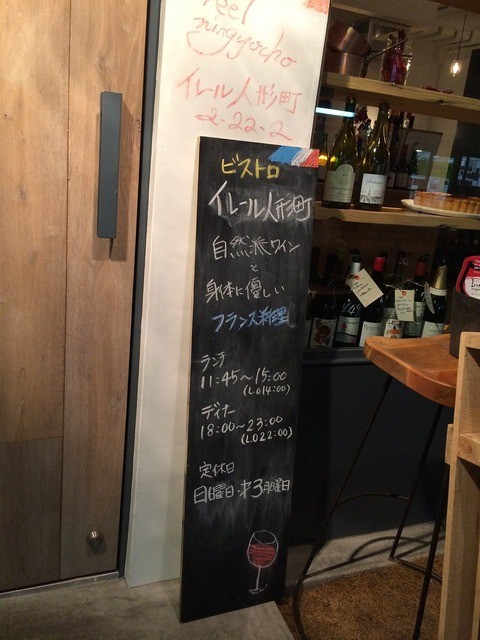 ningyocho
イレール人形町
2-22-2
ビストロ
イレール人形町
自然派ワイン
と
身体に優しい
フランス料理
ランチ
11:45〜15:00
(L.O14:00)
ディナー
18:00〜23:00
(L.O22:00)
定休日
日曜日・才3月曜日